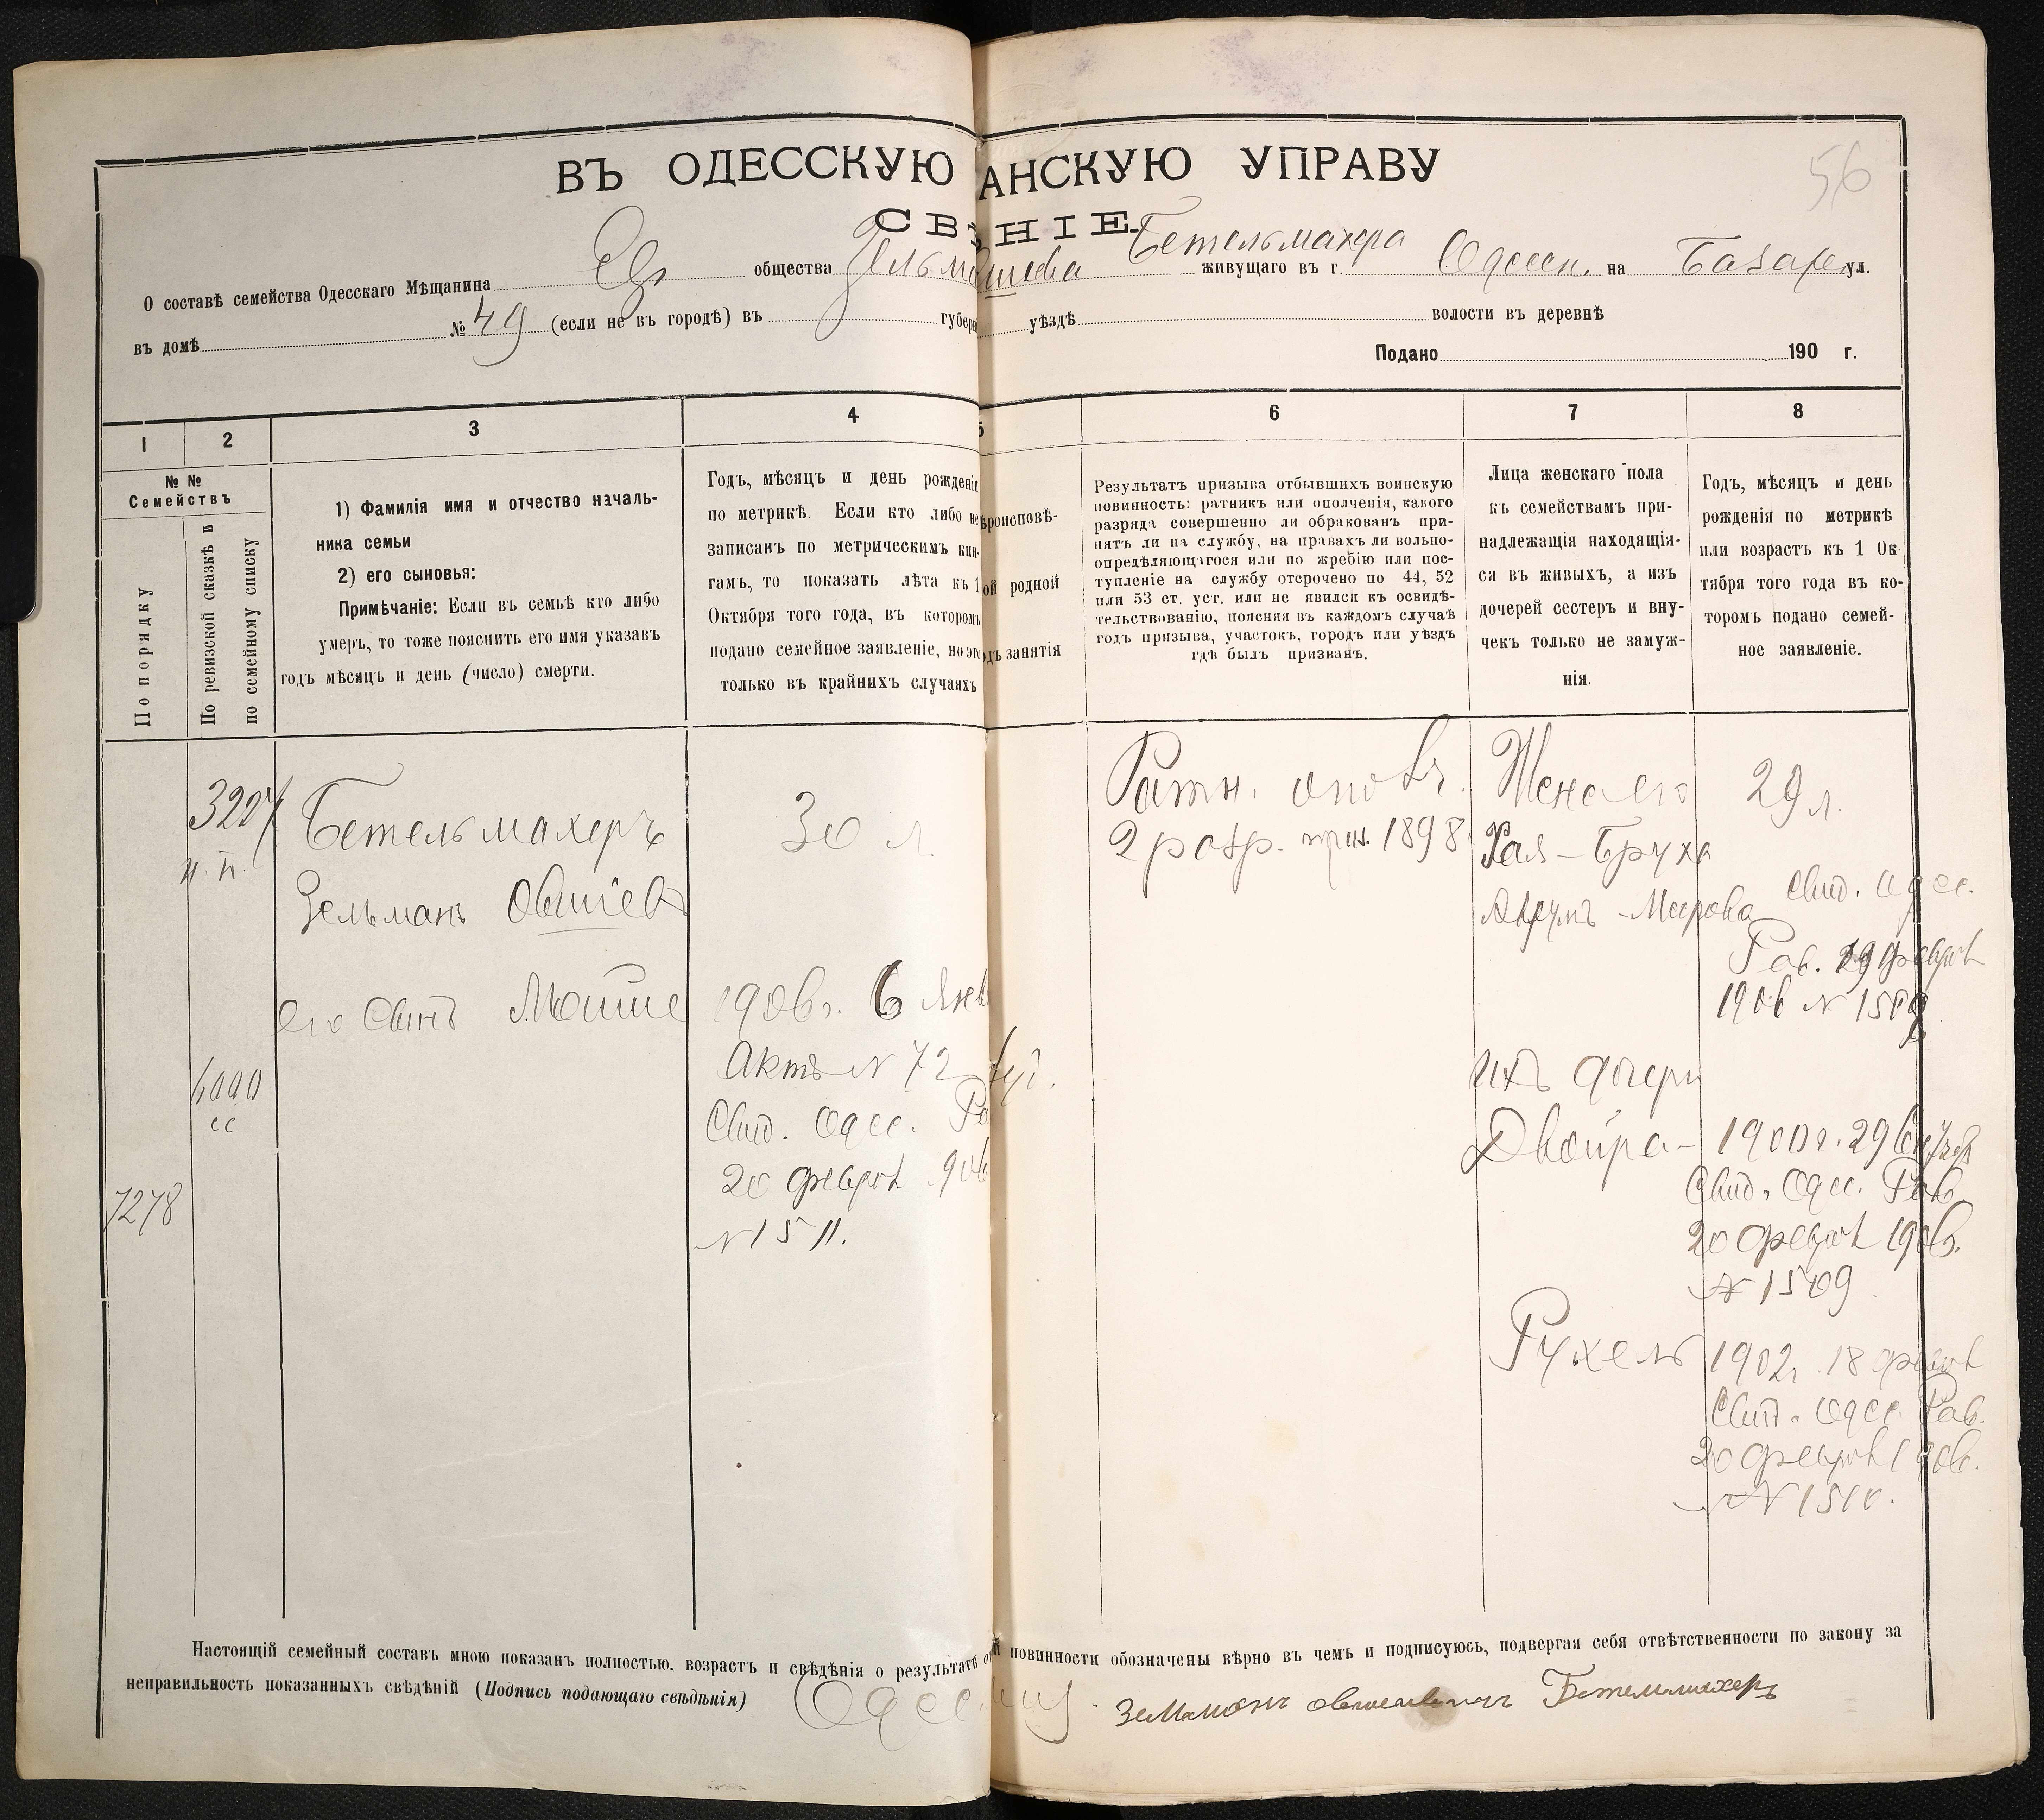 56
ВЪ ОДЕССКУЮ АНСКУЮ УПРАВУ
СВѢ НІЕ
О составѣ семейства Одесскаго Мѣщанина Евр общества Зельм Бетельмахера живущаго въ г. Одессѣ. на Базарн ул.
въ домѣ № 49 (если не въ городѣ) въ губерн уѣздѣ волости въ деревнѣ
Подано 190 г.
1 2 3 4 5 6 7 8
№ №
Семействъ
По порядку
По ревизской сказкѣ и
по семейному списку
1) Фамилія имя и отчество началь-
ника семьи
2) его сыновья:
Примѣчаніе: Если въ семьѣ кто либо
умеръ, то тоже пояснить его имя указавъ
годъ мѣсяцъ и день (число) смерти.
Годъ, мѣсяцъ и день рожденія
по метрикѣ Если кто либо не
записанъ по метрическимъ кни-
гамъ, то показать лѣта къ 1
Октября того года, въ которомъ
подано семейное заявленіе, но это
только въ крайнихъ случаяхъ
ѣроисповѣ-
ой родной
дъ занятія
Результатъ призыва отбывшихъ воинскую
повинность: ратникъ или ополченія, какого
разряда совершенно ли обракованъ при-
нятъ ли на службу, на правахъ ли вольно-
опредѣляющагося или по жребію или пос-
тупленіе на службу отсрочено по 44, 52
или 53 ст. уст. или не явился къ освидѣ-
тельствованію, поясняя въ каждомъ случаѣ
годъ призыва, участокъ, городъ или уѣздъ
гдѣ былъ призванъ.
Лица женскаго пола
къ семействамъ при-
надлежащія находящія-
ся въ живыхъ, а изъ
дочерей сестеръ и вну-
чекъ только не замуж-
нія.
Годъ, мѣсяцъ и день
рожденія по метрикѣ
или возрастъ къ 1 Ок-
тября того года въ ко-
торомъ подано семей-
ное заявленіе.
Бетельмахеръ
Зельманъ Овшіев
его сынъ Мойше
7278
30 л.
1906г. 6 Янв
Актъ № 72
Свид. Одес. Ра
20 феврал 906
№ 1511.
Ратн. опол.
2 разр. приз. 1898
Жена его
Хая-Бруха
Аврумъ-Меерова
29 л.
Свид. Одес.
Рав. феврал
1906 №
ихъ дочери
Двойра-
1900г. 29
Свид. Одес. Рав.
20 феврал 1906.
№ 1509
Рухель
1902г. 18 феврал
Свид. Одес. Рав.
20 феврал 1906.
№ 1510.
Настоящій семейный составъ мною показанъ полностью, возрастъ и свѣдѣнія о результатѣ от й повинности обозначены вѣрно въ чемъ и подписуюсь, подвергая себя отвѣтственности по закону за
неправильность показанныхъ свѣдѣній (Подпись подающаго свѣдѣнія) Зельманъ Овшиевичъ Бетельмахеръ